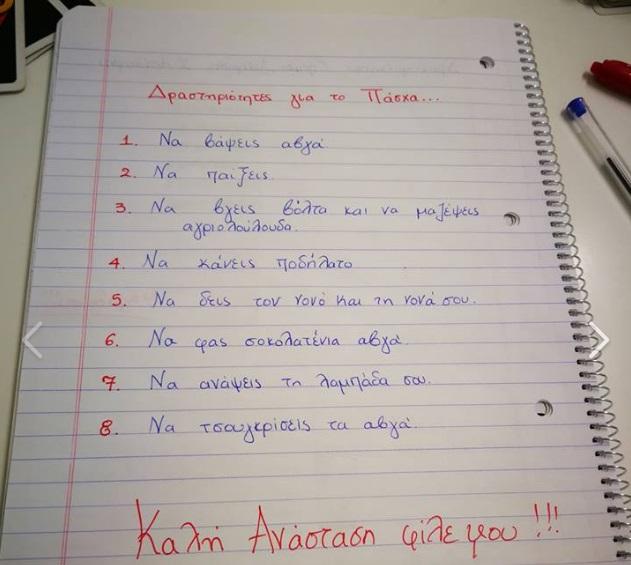 Δραστηριότητες για το Πάσχα...
1. Να βάψεις αβγά
2. Να παίξεις.
3. Να βγεις βόλτα και να μαζέψεις
αγριολούλουδα.
4. Να κάνεις ποδήλατο
5. Να δεις τον νονό και τη νονά σου.
6. Να φας σοκολατένια αβγά.
7. Να ανάψεις τη λαμπάδα σου.
8. Να τσουγκρίσεις τα αβγά.
Καλή Ανάσταση φίλε μου !!!